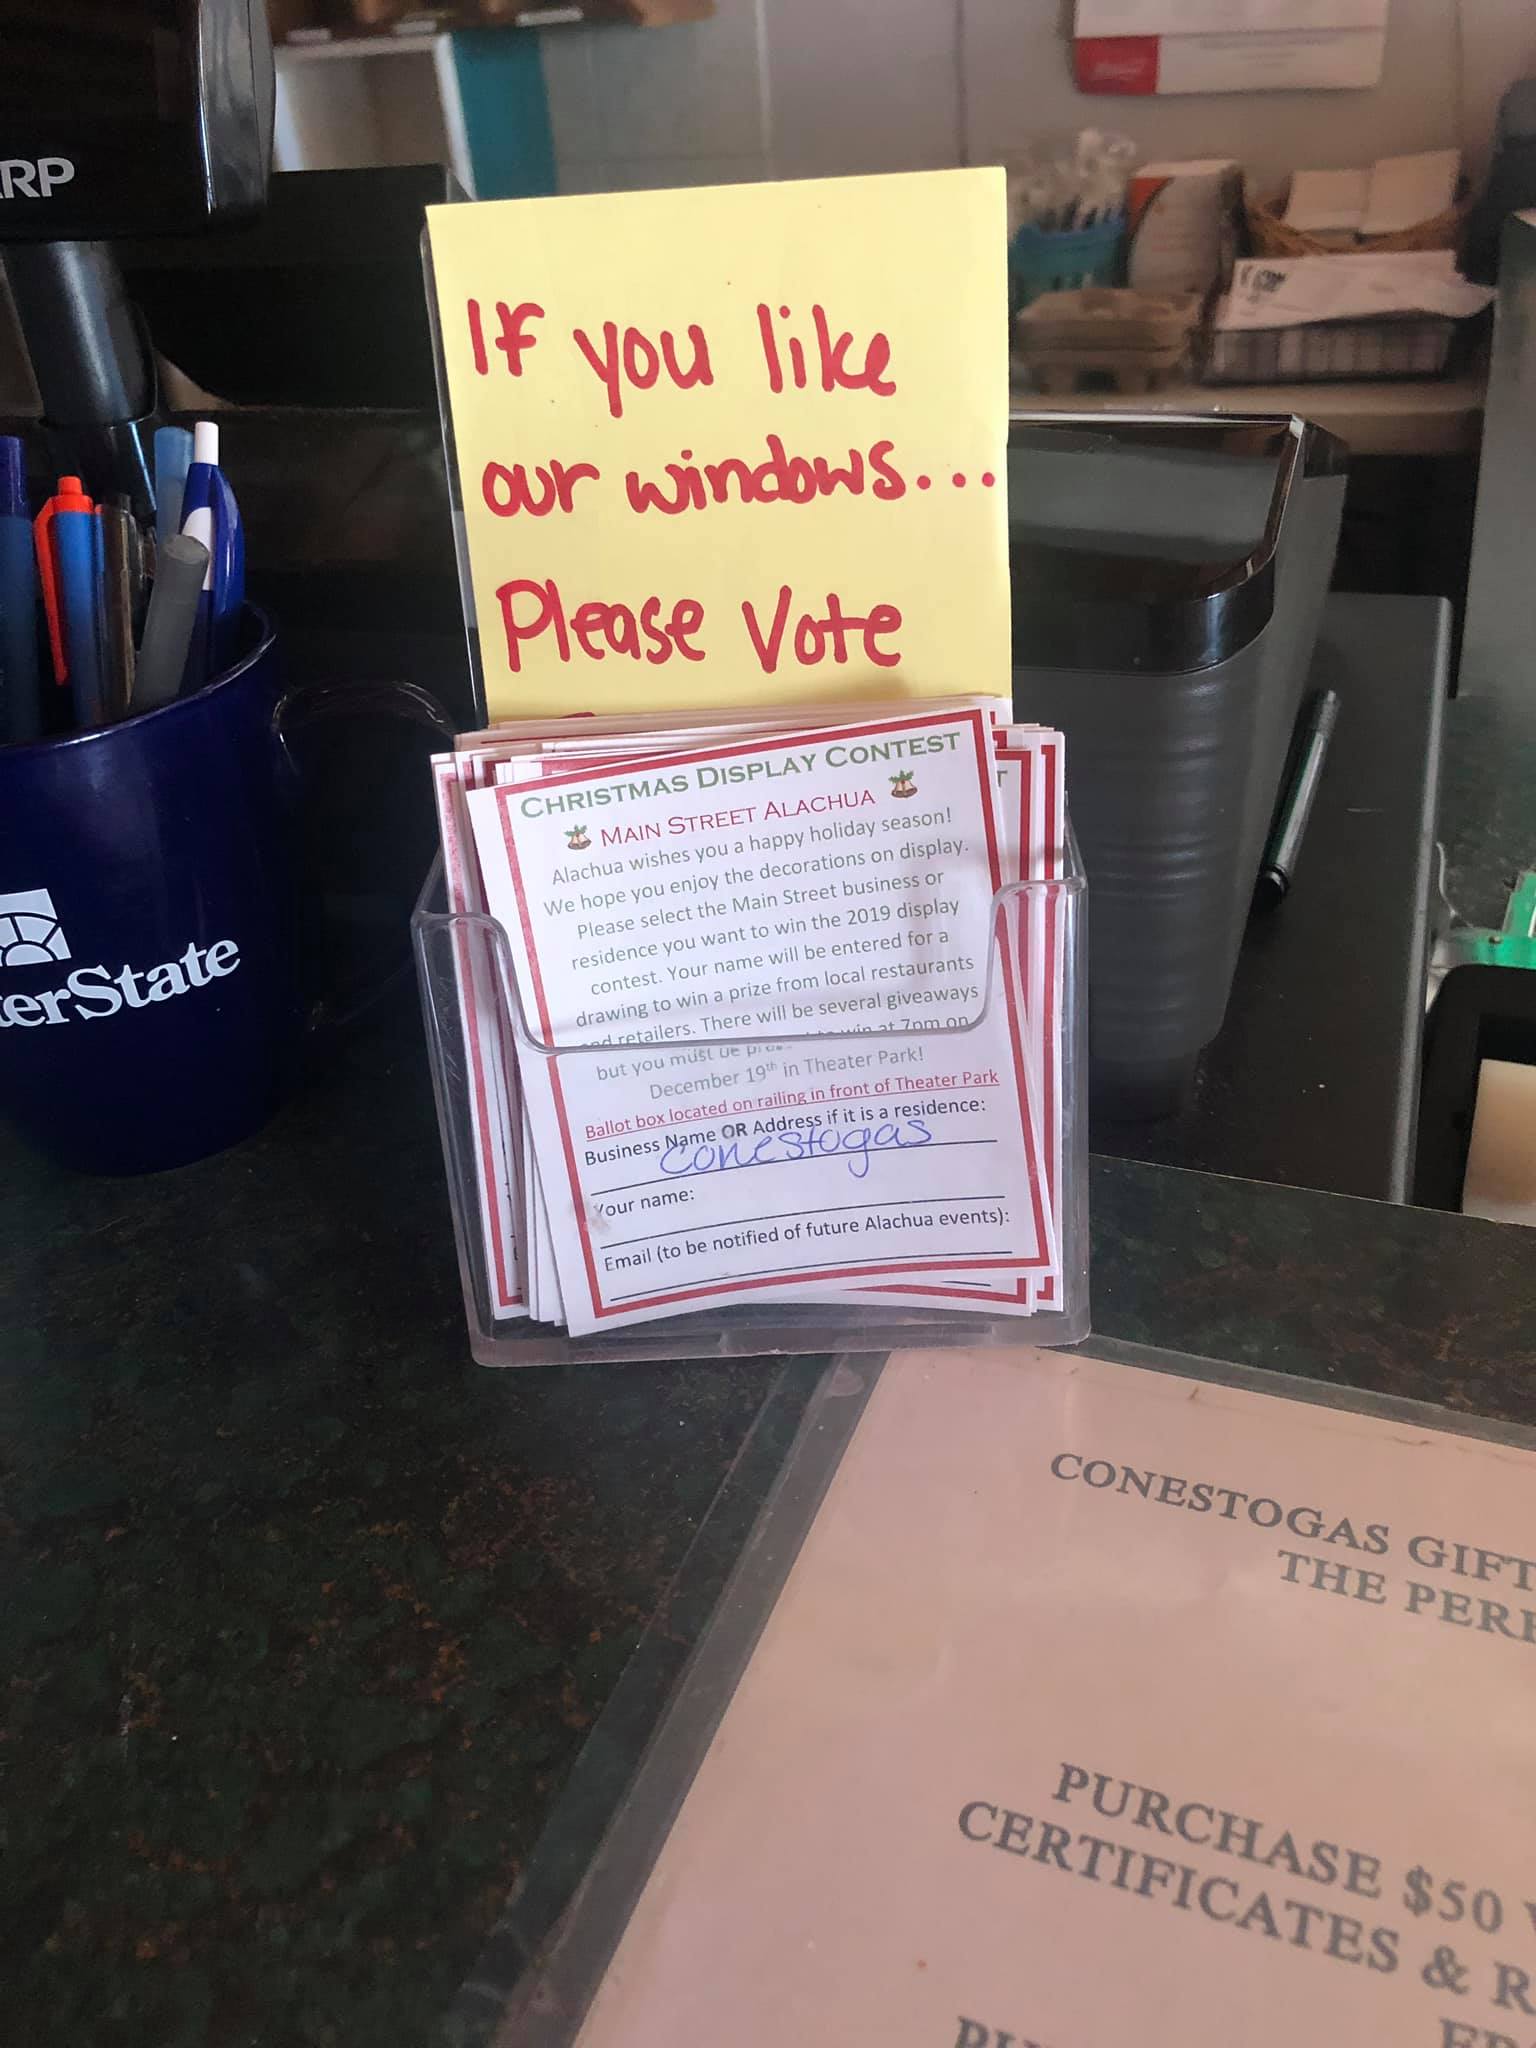 RP
If you like
our windows...
Please Vote
CHRISTMAS DISPLAY CONTEST
MAIN STREET ALACHUA
Alachua wishes you a happy holiday season!
We hope you enjoy the decorations on display.
Please select the Main Street business or
residence you want to win the 2019 display
contest. Your name will be entered for a
drawing to win a prize from local restaurants
and retailers. There will be several giveaways
but you must be to win at 7pm on
December 19th in Theater Park!
Ballot box located on railing in front of Theater Park
Business Name OR Address if it is a residence:
Conestogas
Your name:
Email (to be notified of future Alachua events):
T
terState
CONESTOGAS GIFT
THE PER
PURCHASE $50
CERTIFICATES & R